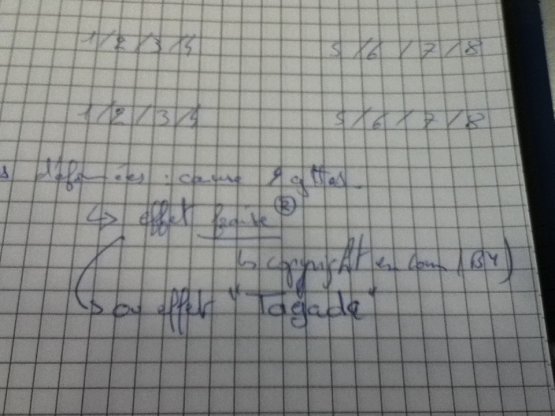 1/2/3/4 5/6/7/8
1/2/3/4 5/6/7/8
s déformées : cause
↳ effet fraise ®
↳ copyright en cours (B4)
↳ ou effet "Tagada"